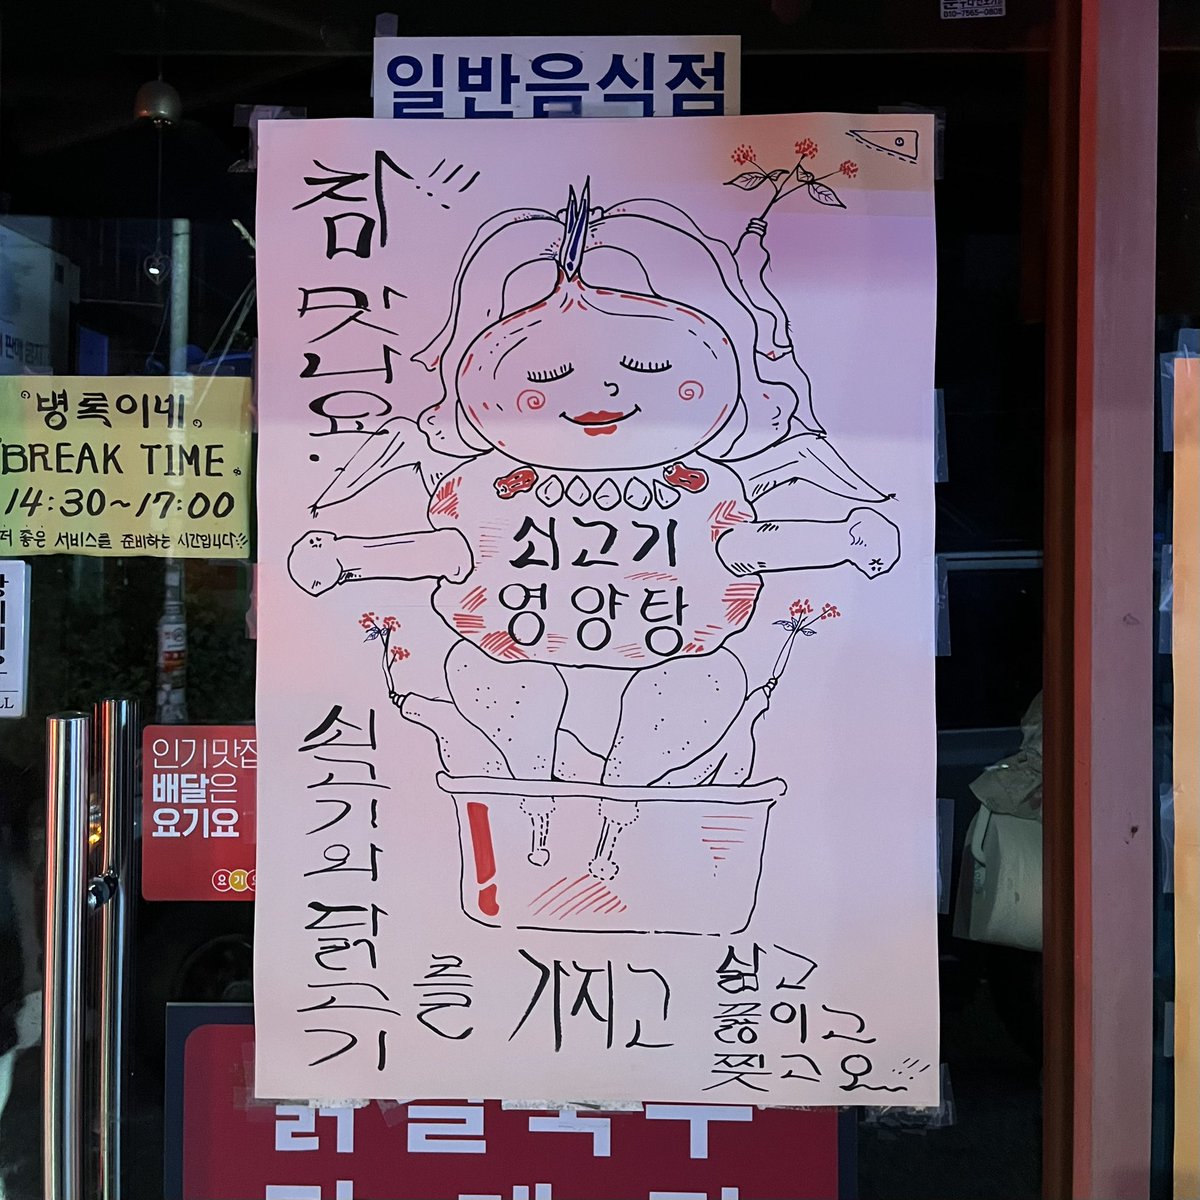 일반음식점
참
맛나요.
쇠고기
영양탕
쇠고기와 닭고기
를 가지고
삶고
끓이고
찢고오
병록이네
BREAK TIME
14:30~17:00
더 좋은 서비스를 준비하는 시간입니다
인기맛집
배달은
요기요